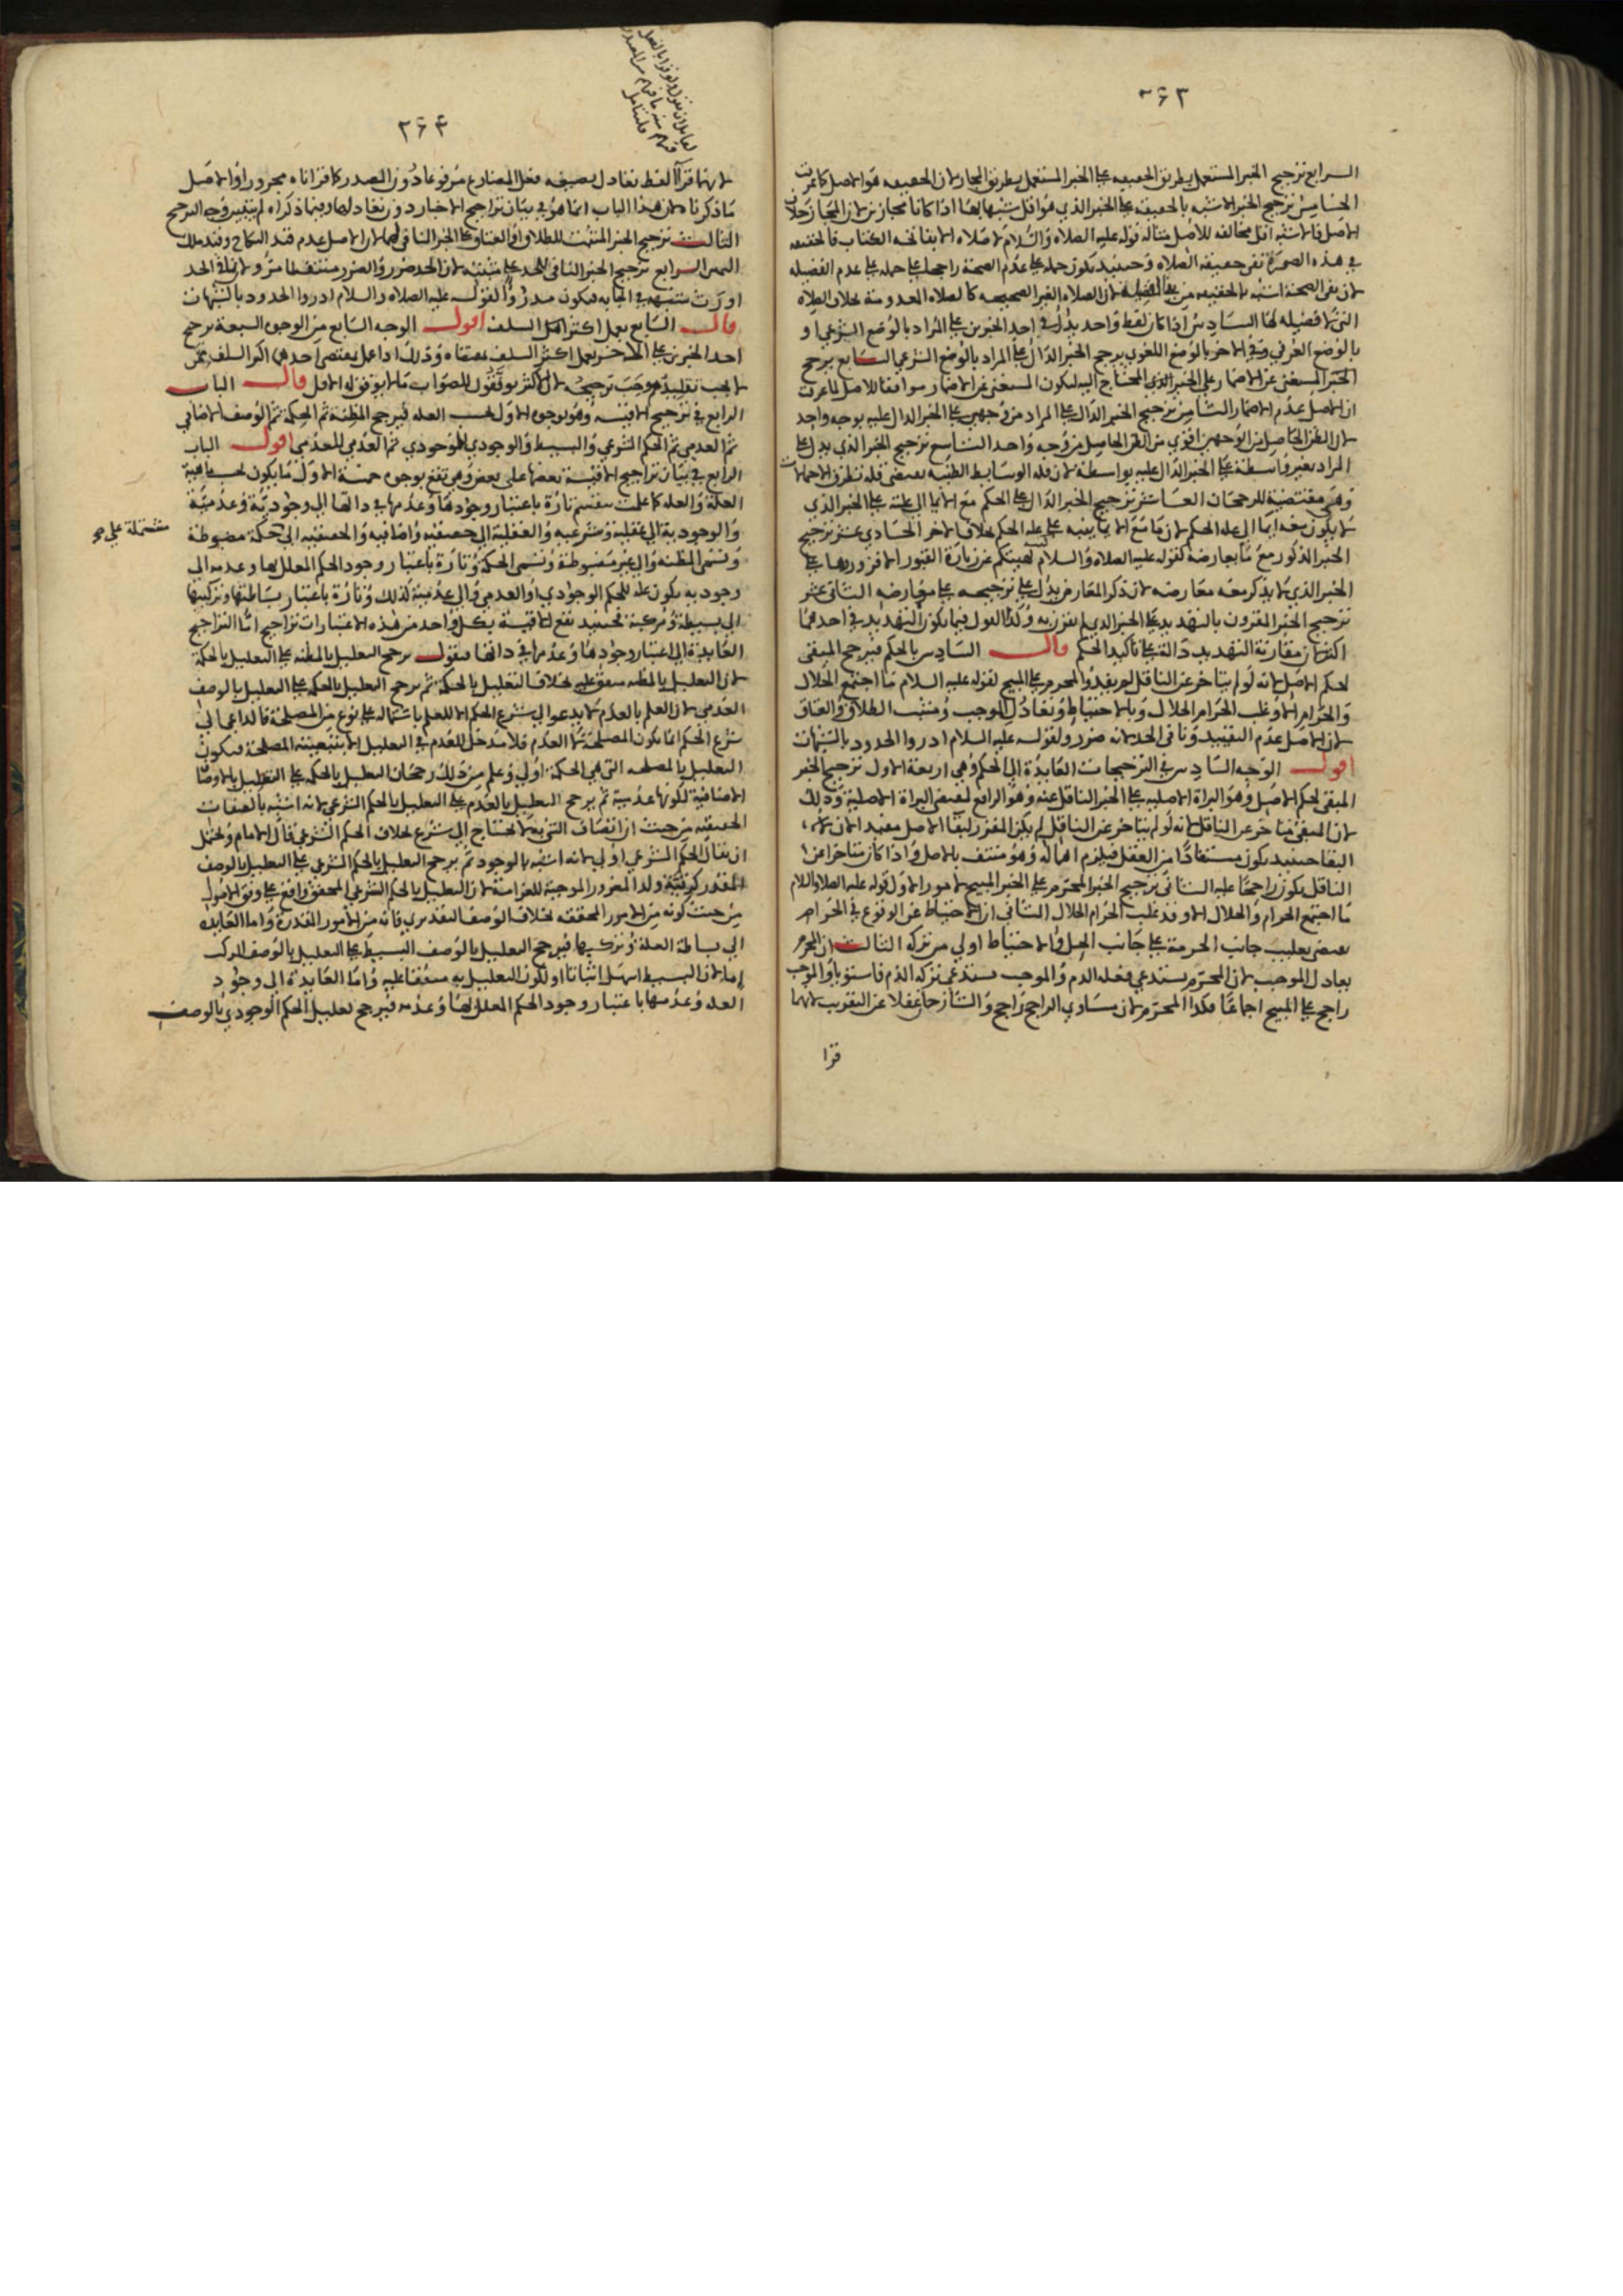 ٢٦٣
الرابع ترجيح الخبر المستعمل بطريق الحقيقه على الخبر المستعمل بطريق المجاز لان الحقيقه هو الاصل كما عرفت
الخامس ترجيح الخبر الاشبه بالحقيقه على الخبر الذي هو اقل شبها بها اذا كانا مجازين لان المجاز خلاف
الاصل فالاشبه اقل مخالفه للاصل مثاله قوله عليه الصلاه والسلام لا صلاه الا بفاتحه الكتاب فالحقيقه
في هذه الصوره نفى حقيقه الصلاه وحينئذ يكون حمله على عدم الصحة راجحا على حمله على عدم الفضيله
لان نفى الصحة اشبه بالحقيقه من نفى الفضيله لان الصلاه الغير الصحيحه كالصلاه المعدومة بخلاف الصلاه
التى لا فضيله لها السادس اذا كان لفظ واحد يدل في احد الخبرين على المراد بالوضع الشرعي او
بالوضع العرفي وفي الاخر بالوضع اللغوي يرجح الخبر الدال على المراد بالوضع الشرعي السابع يرجح
الخبر المستغنى عن الاضمار على الخبر الذي المحتاج اليه ليكون المستغنى عن الاضمار موافقا للاصل لما عرفت
ان الاصل عدم الاضمار الثامن ترجيح الخبر الدال على المراد من وجهين على الخبر الدال عليه بوجه واحد
لان الظن الحاصل من الوجهين اقوى من الظن الحاصل من وجه واحد التاسع ترجيح الخبر الذي يدل على
المراد بغير واسطة على الخبر الدال عليه بواسطة لان قله الوسايط الظنيه تقتضى قله تطرق الاحمالات
وهى مقتضية للرجحان العاشر ترجيح الخبر الدال على الحكم مع الايما الى علته على الخبر الذي
لا يكون معه ايما الى عله الحكم لان ما مع الايما ينبه على عله الحكم بخلاف الاخر الحادي عشر ترجيح
الخبر المذكور مع ما يعارضه كقوله عليه الصلاه والسلام كنت نهيتكم عن زيارة القبور الا فزوروها على
الخبر الذي لا يذكر معه معارضه لان ذكر المعارض يدل على ترجيحه على معارضه الثانى عشر
ترجيح الخبر المقرون بالتهديد على الخبر الذي لم تقترن به وكذا القول فيما يكون التهديد في احدهما
اكثر لان مقارنة التهديد دالة على تأكيد الحكم قال السادس بالحكم فيرجح المبقى
لحكم الاصل لانه لو لم يتاخر عن الناقل لم يفد والمحرم على المبيح لقوله عليه السلام ما اجتمع الحلال
والحرام الا وغلب الحرام الحلال وبالاحتياط وتعادل الموجب ومثبت الطلاق والعتاق
لان الاصل عدم التقييد ونافى الحد لانه ضرر ولقوله عليه السلام ادروا الحدود بالشبهات
اقول الوجه السادس في الترجيحات العايدة الى الحكم وهي اربعة الاول ترجيح الخبر
المبقى لحكم الاصل وهو البراة الاصليه على الخبر الناقل عنه وهو الرافع لمقتضى البراة الاصلية وذلك
لان المبقى متاخر عن الناقل لانه لو لم يتاخر عن الناقل لم يكن المقرر لبقا الاصل مفيدا لان
البقا حينئذ يكون مستفادا من العقل فيلزم اهماله وهو منتف بالاصل واذا كان متاخرا عن
الناقل يكون راجحا عليه الثانى ترجيح الخبر المحرم على الخبر المبيح لامور الاول قوله عليه الصلاه والسلام
ما اجتمع الحرام والحلال الا وقد غلب الحرام الحلال الثانى ان الاحتياط عن الوقوع في الحرام
يقتضى تغليب جانب الحرمة على جانب الحل والاحتياط اولى من تركه الثالث ان المحرم
يعادل الموجب لان المحرم يستدعي فعله الذم والموجب يستدعى تركه الذم فاستويا والموجب
راجح على المبيح اجماعا فكذا المحرم لان مساوي الراجح راجح والشارحان غفلا عن التقريب لانهما
قرا
٢٦٤
لانهما قرآ لفظ تعادل بصيغه فعل المضارع مرفوعا دون المصدر كما قراناه مجرورا والاصل
ما ذكرنا لان هذا الباب انما هو في بيان تراجيح الاخبار دون تعادلها وبما ذكراه لم يتبين وجه الترجيح
الثالث ترجيح الخبر المثبت للطلاق او العتاق على الخبر النافى لهما لان الاصل عدم قيد النكاح وقيد ملك
اليمين الرابع ترجيح الخبر النافى للحد على مثبته لان الحد ضرر والضرر منتف
اورث شبهة في ايجابه فيكون مدروا لقوله عليه الصلاه والسلام ادروا الحدود بالشبهات
قال السابع بعمل اكثر السلف اقول الوجه السابع من الوجوه السبعة يرجح
احد الخبرين على الاخر بعمل اكثر السلف بمقتضاه وذلك اذا عمل بمقتضى احدهما اكثر السلف ممن
لا يجب تقليدهم وجب ترجيحه لان الاكثر يوفقون للصواب ما لا يوفق له الاقل قال الباب
الرابع في ترجيح الاقيسه وهو بوجوه الاول بحسب العله فيرجح المظنة ثم الحكمة ثم الوصف الاضافي
ثم العدمي ثم الحكم الشرعي والبسيط والوجودي للوجودي ثم العدمي للعدمي اقول الباب
الرابع في بيان تراجيح الاقيسة بعضها على بعض وهي تقع بوجوه خمسة الاول ما يكون بحسب ماهية
العلة والعله كما علمت تنقسم تارة باعتبار وجودها وعدمها في ذاتها الى وجودية وعدمية
والوجودية الى عقلية وشرعيه والعقلية الى حقيقيه واضافيه والحقيقيه الى حكمة مضبوطة
وتسمى المظنه والى غير مضبوطة وتسمى الحكمة وتارة باعتبار وجود الحكم المعلل بها وعدمه الى
وجوديه بكون عله للحكم الوجودي او العدمي والى عدمية كذلك وتارة باعتبار بساطتها وتركيبها
الى بسيطة ومركبة فحينئذ تقع الاقيسة بكل واحد من هذه الاعتبارات تراجيح اما التراجيح
العايدة الى اعتبار وجودها وعدمها في ذاتها فنقول يرجح التعليل بالمظنه على التعليل بالحكمة
لان التعليل بالمظنه متفق عليه بخلاف التعليل بالحكمة ثم يرجح التعليل بالحكمة على التعليل بالوصف
العدمى لان العلم بالعدم لا يدعو الى شرع الحكم الا للعلم باشتماله على نوع من المصلحة فالداعى الى
شرع الحكم انما يكون المصلحة لا العدم فلا مدخل للعدم في التعليل الا بتبعيته المصلحة فيكون
التعليل بالمصلحه التى هي الحكمة اولى وعلم من ذلك رجحان التعليل بالحكمه على التعليل بالاوصاف
الاضافية لكونها عدمية ثم يرجح التعليل بالعدم على التعليل بالحكم الشرعي لانه اشبه بالصفات
الحقيقيه من حيث ان اتصاف الشى به لا يحتاج الى شرع بخلاف الحكم الشرعي قال الامام ويحتمل
ان يقال الحكم الشرعي اولى لانه اشبه بالوجود ثم يرجح التعليل بالحكم الشرعي على التعليل بالوصف
المقدر لان التعليل بالحكم الشرعي المحقق واقع على وفق الاصول
من حيث كونه من الامور المحققه بخلاف الوصف التقديري فانه من الامور المقدرة واما العايده
الى بساطة العلة وتركيبها فيرجح التعليل بالوصف البسيط على التعليل بالوصف المركب
اما لان البسيط اسهل اثباتا او لكون التعليل به متفقا عليه واما العايدة الى وجود
العله وعدمها باعتبار وجود الحكم المعلل بها وعدمه فيرجح تعليل الحكم الوجودي بالوصف
مشتملة على